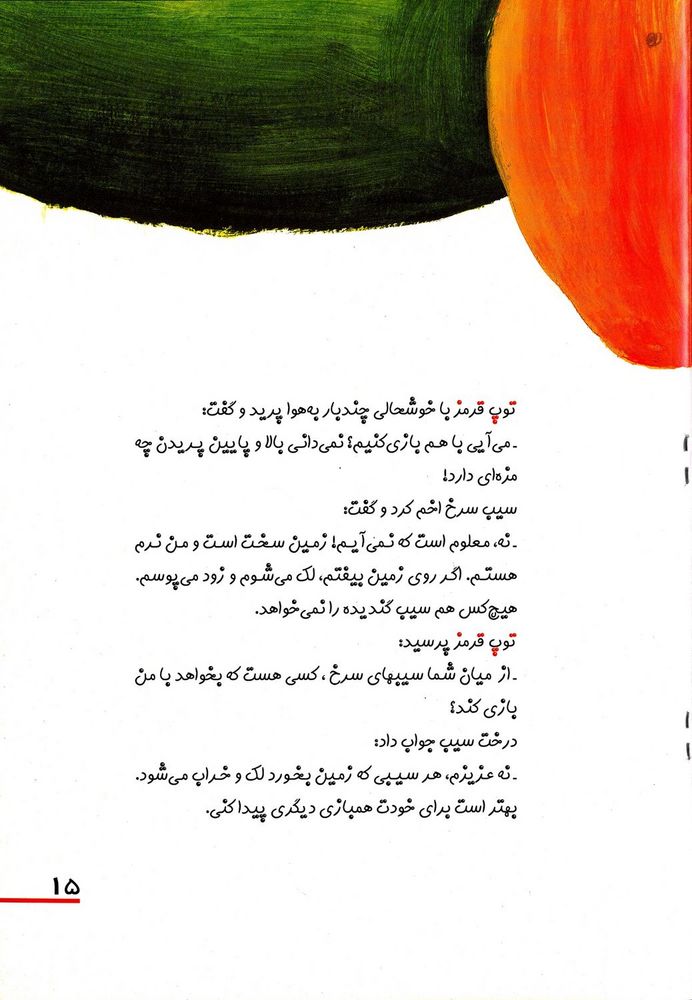 توپ قرمز با خوشحالی چندبار به‌هوا پرید و گفت:
ـ می‌آیی با هم بازی‌کنیم؟ نمی‌دانی بالا و پایین پریدن چه
مزه‌ای دارد!
سیب سرخ اخم کرد و گفت:
ـ نه، معلوم است که نمی‌آیم! زمین سخت است و من نرم
هستم. اگر روی زمین بیفتم، لک می‌شوم و زود می‌پوسم.
هیچ‌کس هم سیب گندیده را نمی‌خواهد.
توپ قرمز پرسید:
ـ از میان شما سیبهای سرخ، کسی هست که بخواهد با من
بازی کند؟
درخت سیب جواب داد:
ـ نه عزیزم، هر سیبی که زمین بخورد لک و خراب می‌شود.
بهتر است برای خودت همبازی دیگری پیدا کنی.
۱۵